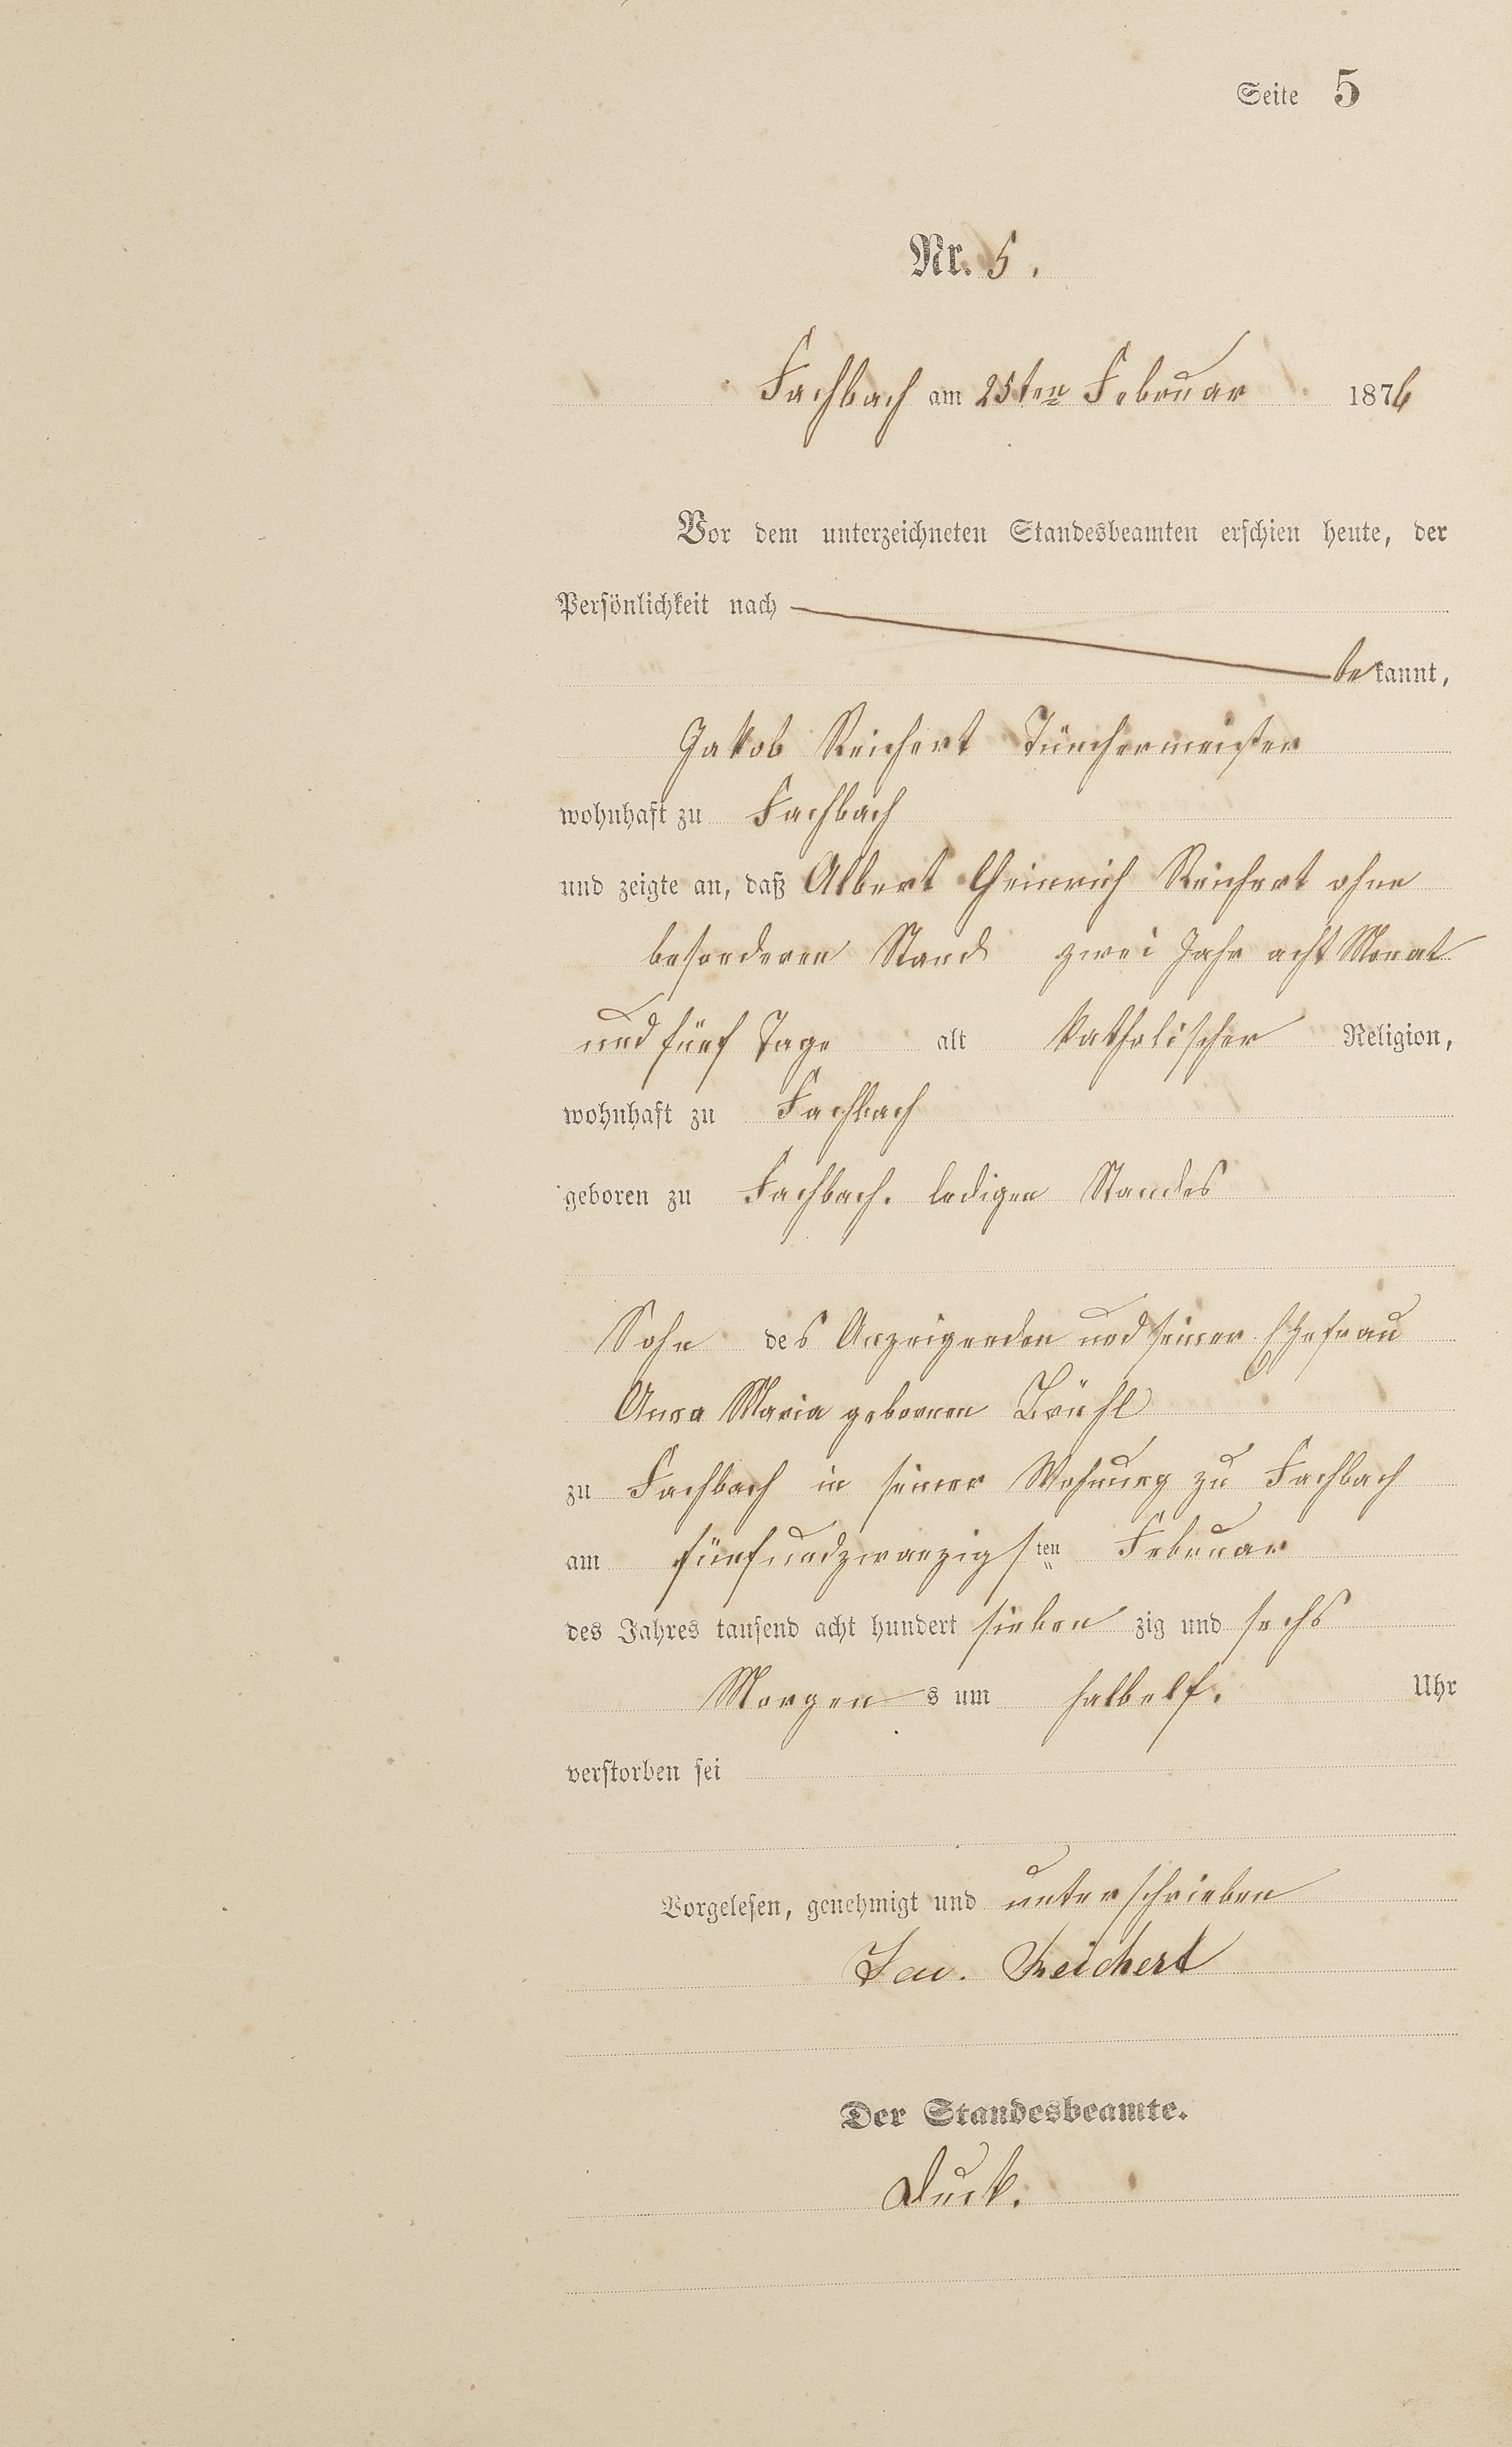 Seite 5
Nr. 5.
Fachbach am 25ten Februar 1876
Vor dem unterzeichneten Standesbeamten erschien heute, der
Persönlichkeit nach
bekannt,
Jakob Reichert Tünchermeister
wohnhaft zu Fachbach
und zeigte an, daß Albert Heinrich Reichert ohne
besonderen Stand zwei Jahr acht Monat
und fünf Tage alt katholischer Religion,
wohnhaft zu Fachbach
geboren zu Fachbach. ledigen Standes
Sohn des Anzeigenden und seiner Ehefrau
Anna Maria gebornen Brühl
zu Fachbach in seiner Wohnung zu Fachbach
am fünfundzwanzigsten Februar
des Jahres tausend acht hundert sieben zig und sechs
Morgens um halbelf. Uhr
verstorben sei
Vorgelesen, genehmigt und unterschrieben
Reichert
Der Standesbeamte.
Duck.